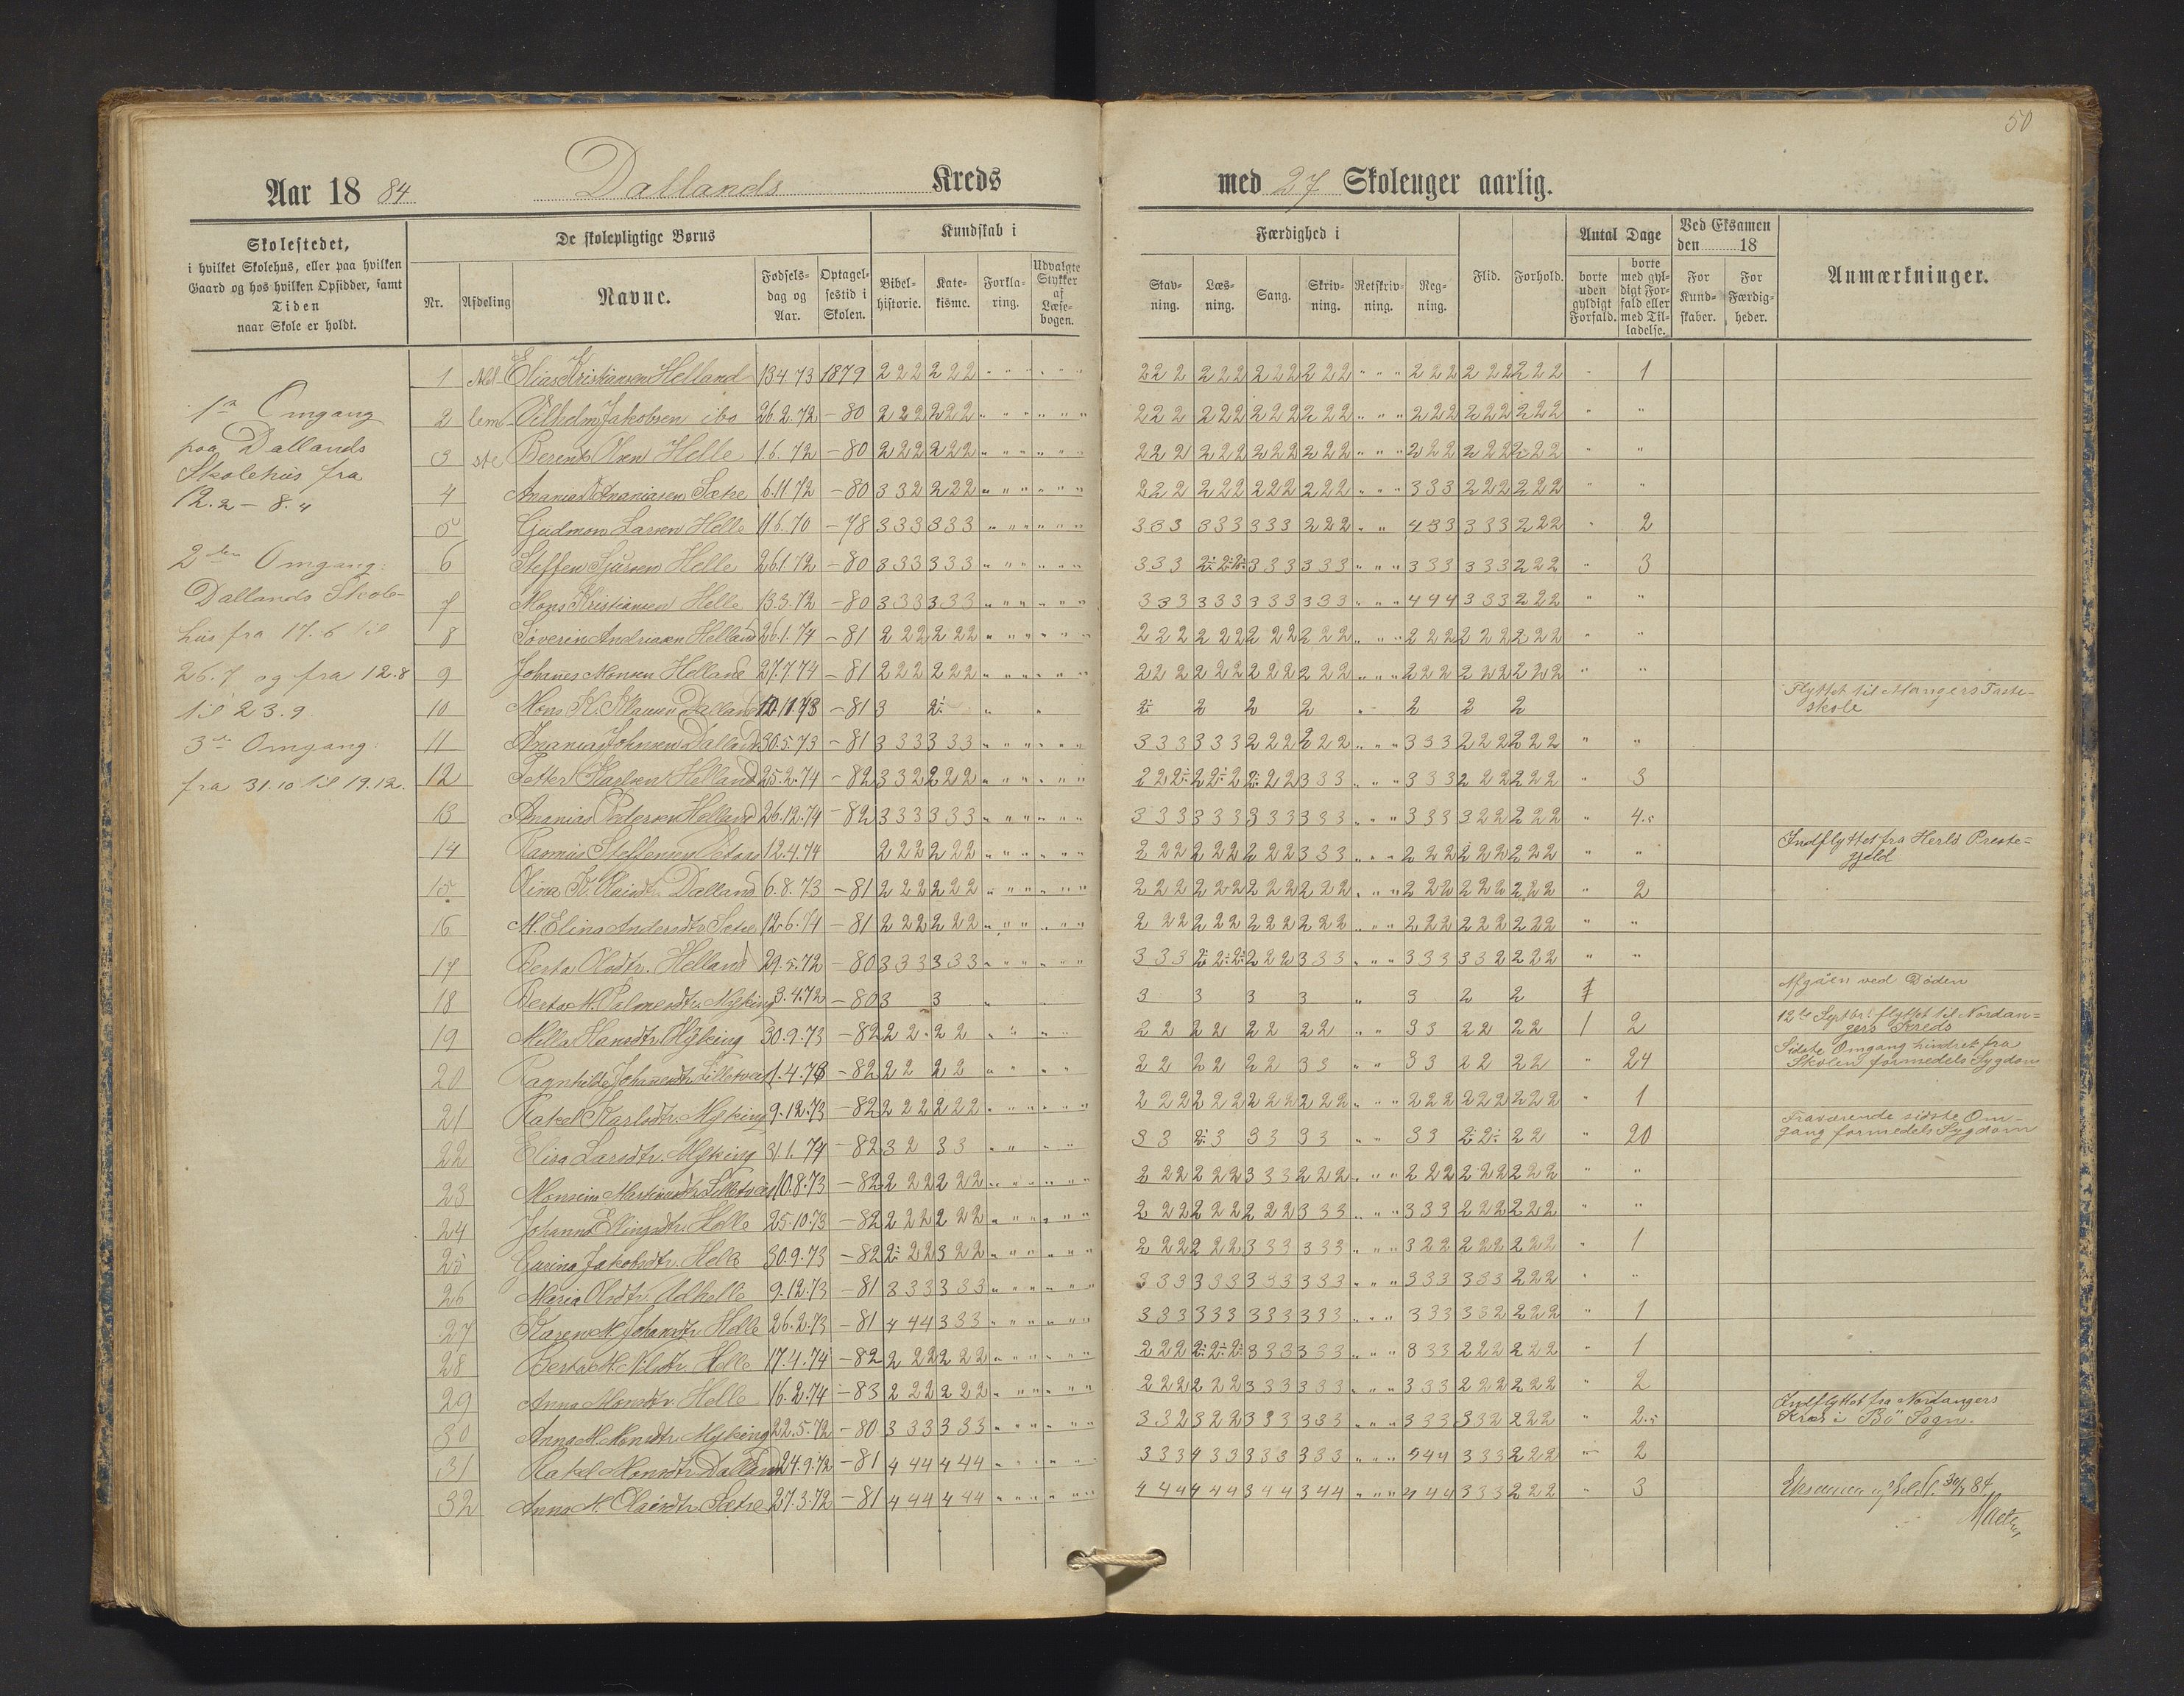 50
Aar 1884 Dallands Kreds
med 27 Skoleuger aarlig.
Skolestedet,
i hvilket Skolehus, eller paa hvilken
Gaard og hos hvilken Opsidder, samt
Tiden
naar Skole er holdt.
De skolepligtige Børns
Nr. Afdeling Navne. Fødselsdag og Aar. Optagelsestid i Skolen.
Kundskab i
Bibelhistorie. Katekisme. Forklaring. Udvalgte Stykker af Læsebogen.
Færdighed i
Stavning. Læsning. Sang. Skrivning. Retskrivning. Regning.
Flid. Forhold.
Antal Dage
borte uden gyldigt Forfald. borte med gyldigt Forfald eller med Tilladelse.
Ved Eksamen
den 18
For Kundskaber. For Færdigheder.
Anmærkninger.
1ste Omgang
paa Dallands
Skolehus fra
12.2 – 8.4
2den Omgang:
Dallands Skole-
hus fra 17.6 til
26.7 og fra 12.8
til 23.9
3de Omgang:
fra 31.10 til 19.12.
1 Elias Kristiansen Helland 13.4.73 1879 222 222 " " " " " " 222 222 222 222 " " " 222 222 222 " 1
2 Vilhelm Jakobsen ibd 26.2.72 – 80 222 222 " " " " " " 222 222 222 222 " " " 222 222 222 " "
3 Berent Olsen Helle 1.6.72 – 80 222 222 " " " " " " 222 222 222 222 " " " 222 222 222 " "
4 Ananias Ananiasen Sætre 6.11.72 – 80 332 222 " " " " " " 222 222 222 222 " " " 333 222 222 " "
5 Gudmon Larsen Helle 11.6.70 – 78 333 333 " " " " " " 333 333 333 222 " " 433 333 222 " 2
6 Steffen Sjursen Helle 26.1.72 – 80 333 333 " " " " " " 333 2÷2÷2÷ 333 333 " " " 333 333 222 " 3
7 Mons Kristiansen Helle 13.3.72 – 80 333 333 " " " " " " 333 333 333 333 " " " 444 333 222 " "
8 Severin Andreasen Helland 26.1.74 – 81 222 222 " " " " " " 222 222 222 222 " " " 222 222 222 " "
9 Johannes Monsen Helland 27.7.74 – 81 222 222 " " " " " " 222 222 222 222 " " " 222 222 222 " "
10 Mons K. Dalland – 81 3 2÷ " " 2÷ 2 2 2 " 2 2 2 Flyttet til Mangers Faste-
skole
11 Ananias Johnsen Dalland 30.5.73 – 81 333 333 " " " " " " 333 333 222 222 " " " 333 222 222 " "
12 Petter Helland 25.2.74 – 82 332 222 " " " " " " 222÷ 22÷2 2÷22 333 " " " 333 222 222 " 3
13 Ananias Pedersen Helland 26.12.74 – 82 333 333 " " " " " " 333 333 333 333 " " " 333 322 222 " 4.5
14 Rasmus Steffensen 12.4.74 222 222 " " " " " " 222 222 222 333 " " " 222 222 222 " " Indflyttet fra Herlø Preste-
gjeld
15 Olina K. Dalland 6.8.73 – 81 222 222 " " " " " " 222 222 222 222 " " " 222 222 222 " 2
16 M. Elina Andersdtr. Sætre 12.6.74 – 81 222 222 " " " " " " 222 222 222 222 " " " 222 222 222 " "
17 Berta Olsdtr. Helland 29.5.72 – 80 333 333 " " " " " " 333 2÷2÷2÷ 222 333 " " " 333 332 222 " "
18 Berta M. Palmesdtr. Myking 3.4.72 – 80 3 3 " " 3 3 3 3 " 3 2 2 1 Afgåen ved Døden
19 Milla Hansdtr. Myking 30.9.73 – 82 22 22 " " " " 22 22 22 22 " " 33 22 22 1 2 12te Septbr. flyttet til Nordan-
gers Kreds
20 Ragnhilde Johannesdtr. Lilletvedt – 82 22 22 " " " " 22 22 22 33 " " 33 22 22 " 24 Sidste Omgang hindret fra
Skolen formedels Sygdom
21 Rakel Karlsdtr. Myking 9.12.73 – 82 222 222 " " " " " " 222 222 222 222 " " " 222 222 222 " 1
22 Elisa Larsdtr. Myking 31.1.74 – 82 32 33 " " " " 33 2÷3 33 33 " " 33 2÷2÷ 22 " 20 Fraværende sidste Om-
gang formedels Sygdom
23 Monsine Lilletvedt 10.8.73 – 82 222 222 " " " " " " 222 222 333 222 " " " 222 222 222 " "
24 Johanna Ellingsdtr. Helle 25.10.73 – 82 222 222 " " " " " " 222 222 222 333 " " " 333 222 222 " "
25 Gurina Jakobsdtr. Helle 30.9.73 – 82 2÷22 322 " " " " " " 222 222 333 333 " " " 322 222 222 " 1
26 Maria Olsdtr. Udhelle 9.12.73 – 81 333 333 " " " " " " 333 333 333 333 " " " 333 333 222 " "
27 Karen M. Johansdtr. Helle 26.2.73 – 81 444 333 " " " " " " 333 333 333 333 " " " 333 332 222 " 1
28 Berta M. Nilsdtr. Helle 17.4.74 – 82 222 222 " " " " " " 222 2÷2÷2÷ 333 333 " " " 333 222 222 " 1
29 Anna Monsdtr. Helle 16.2.74 – 83 222 222 " " " " " " 222 222 333 333 " " " 333 222 222 " 2
30 Anna M. Monsdtr. Myking 22.5.72 – 80 333 333 " " " " " " 332 322 333 333 " " " 333 332 222 " 2.5 Indflyttet fra Nordangers
Kreds i Bø Sogn.
31 Rakel Monsdtr. Dalland 24.9.72 – 81 444 444 " " " " " " 333 433 333 333 " " " 344 333 222 " 2
32 Anna M. Olaisdtr. Sætre 27.3.72 – 81 444 444 " " " " " " 444 444 344 344 " " " 444 333 222 " 3 Eksamen 84